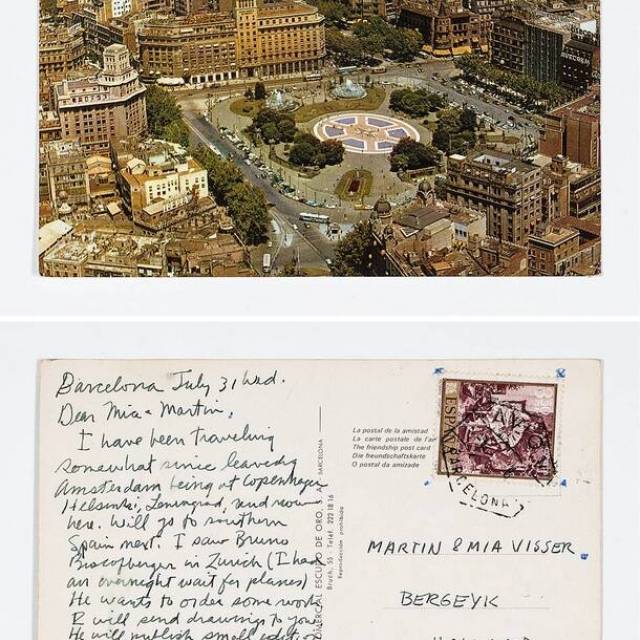 Barcelona July 31 Wed.
Dear Mia & Martin,
I have been traveling
somewhat since leaving
Amsterdam being at Copenhagen
Helsinki, Leningrad, and now
here. Will go to southern
Spain next. I saw Bruno
Biscofberger in Zurich (I had
an overnight wait for planes)
He wants to order some work
& will send drawings to you
He will publish small edit. of
COMERCIAL ESCUDO DE ORO, S. A. BARCELONA
Bruch, 55 - Telef. 222 18 16
Reproducción prohibida
La postal de la amistad
La carte postale de l'am
The friendship post card
Die freundschaftskarte
O postal da amizade
ESPAÑA
BARCELONA
MARTIN & MIA VISSER
BERGEYK